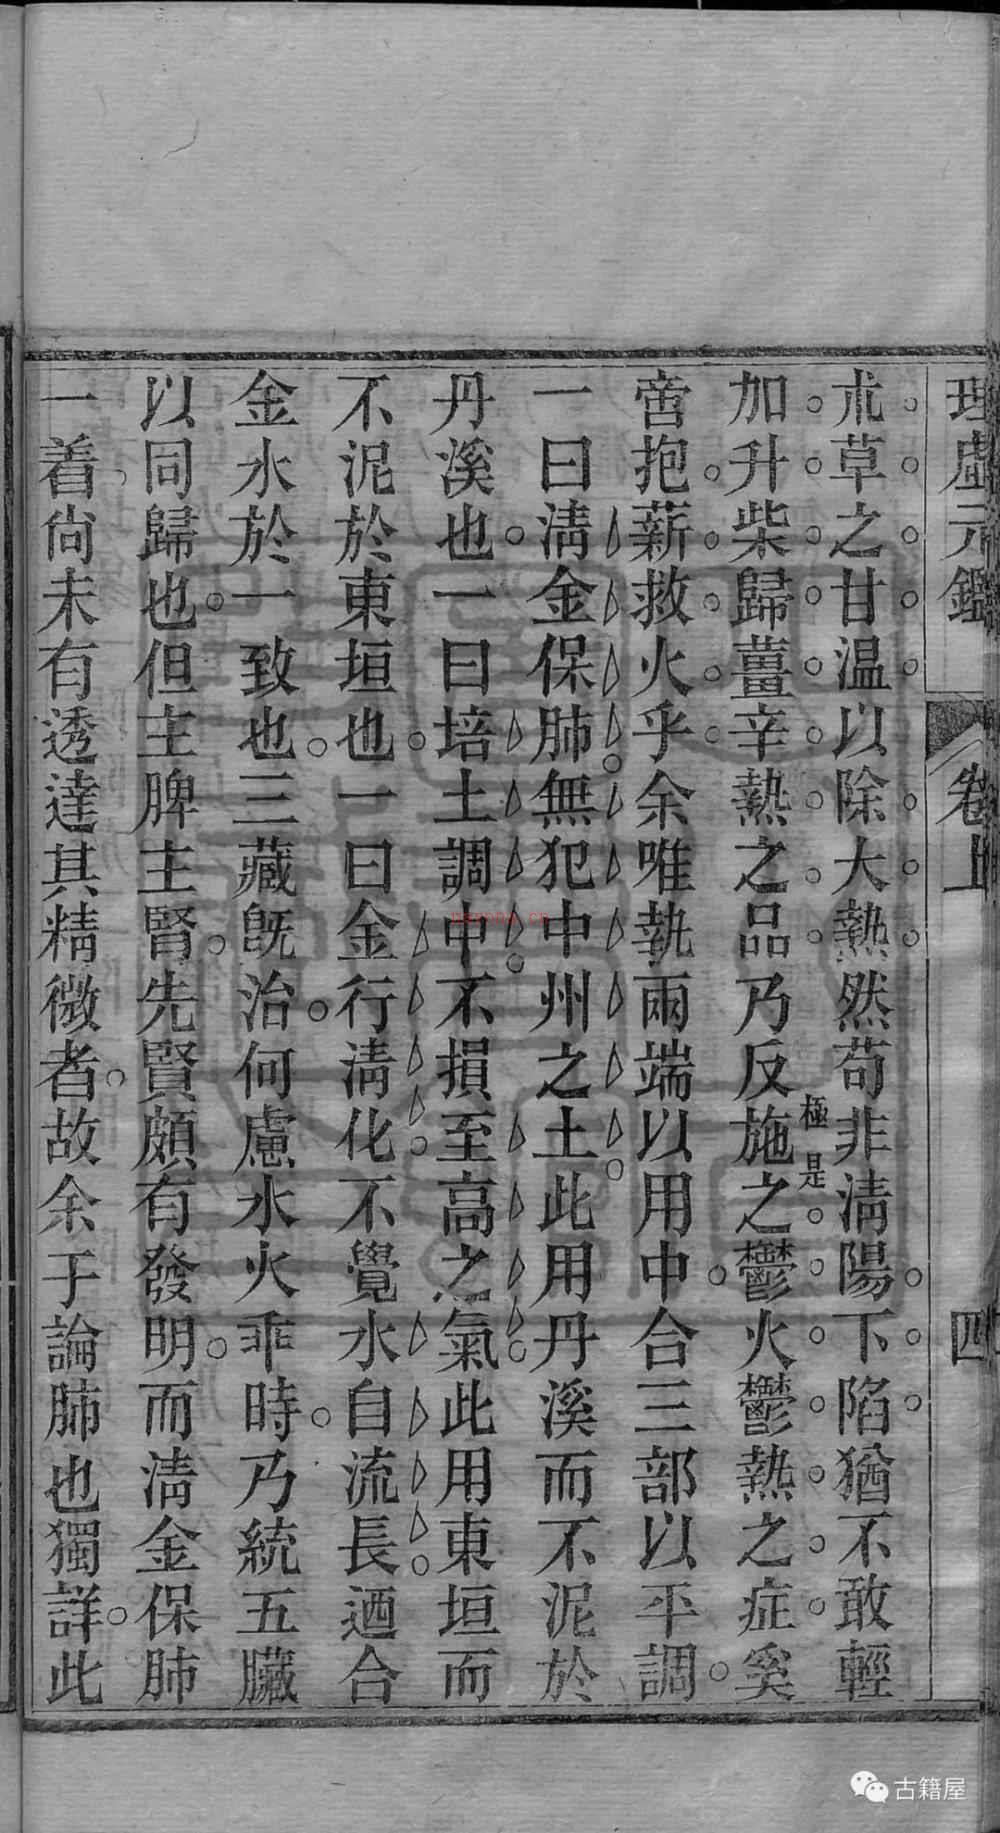 理虛元鑑 卷上 四
朮草之甘温以除大熱然苟非淸陽下陷猶不敢輕
加升柴歸薑辛熱之品乃反施之鬱火鬱熱之症奚
極是
啻抱薪救火乎余唯執兩端以用中合三部以平調
一曰淸金保肺無犯中州之土此用丹溪而不泥於
丹溪也一曰培土調中不損至高之氣此用東垣而
不泥於東垣也一曰金行淸化不覺水自流長迺合
金水於一致也三藏旣治何慮水火乖時乃統五臟
以同歸也但主脾主腎先賢頗有發明而淸金保肺
一着尙未有透達其精微者故余于論肺也獨詳此
古籍屋